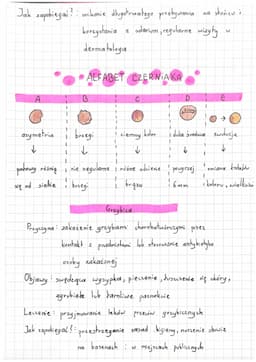 Jak zapobiegać?: unikanie długotrwałego przebywania na słońcu i
korzystania z solarium, regularne wizyty u
dermatologa
ALFABET CZERNIAKA
A B C D E
asymetria brzegi ciemny kolor duża średnica ewolucja
połowy różnią nie regularne różne odcienie powyżej zmiana kształtu
się od siebie brzegi brązu 6mm koloru, wielkości
Grzybica
Przyczyna: zakażenie grzybami chorobotwórczymi przez
kontakt z przedmiotami lub stosowanie antybiotyku
osoby zakażonej
Objawy: swędząca wysypka, pieczenie, łuszczenie się skóry,
zgrubiałe lub łamliwe paznokcie
Leczenie: przyjmowanie leków przeciw grzybicznych
Jak zapobiegać?: przestrzeganie zasad higieny, noszenie obuwia
na basenach i w miejscach publicznych